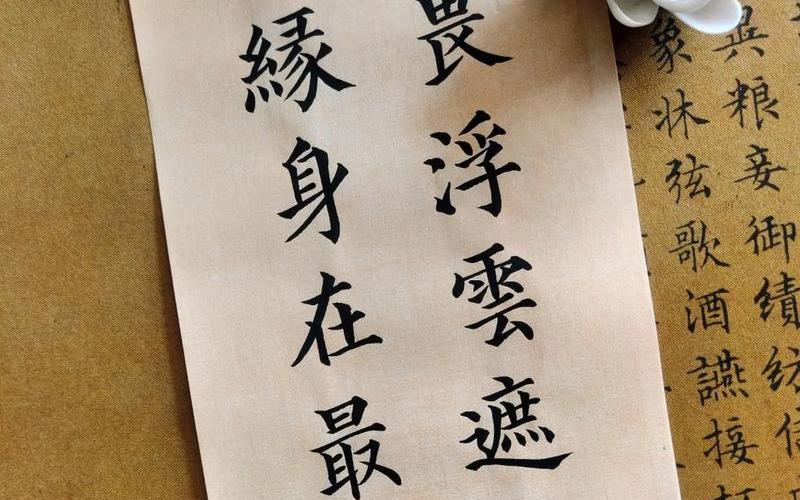 異粮妾御績紡侍
象牀弦歌酒讌接
畏浮雲遮
緣身在最